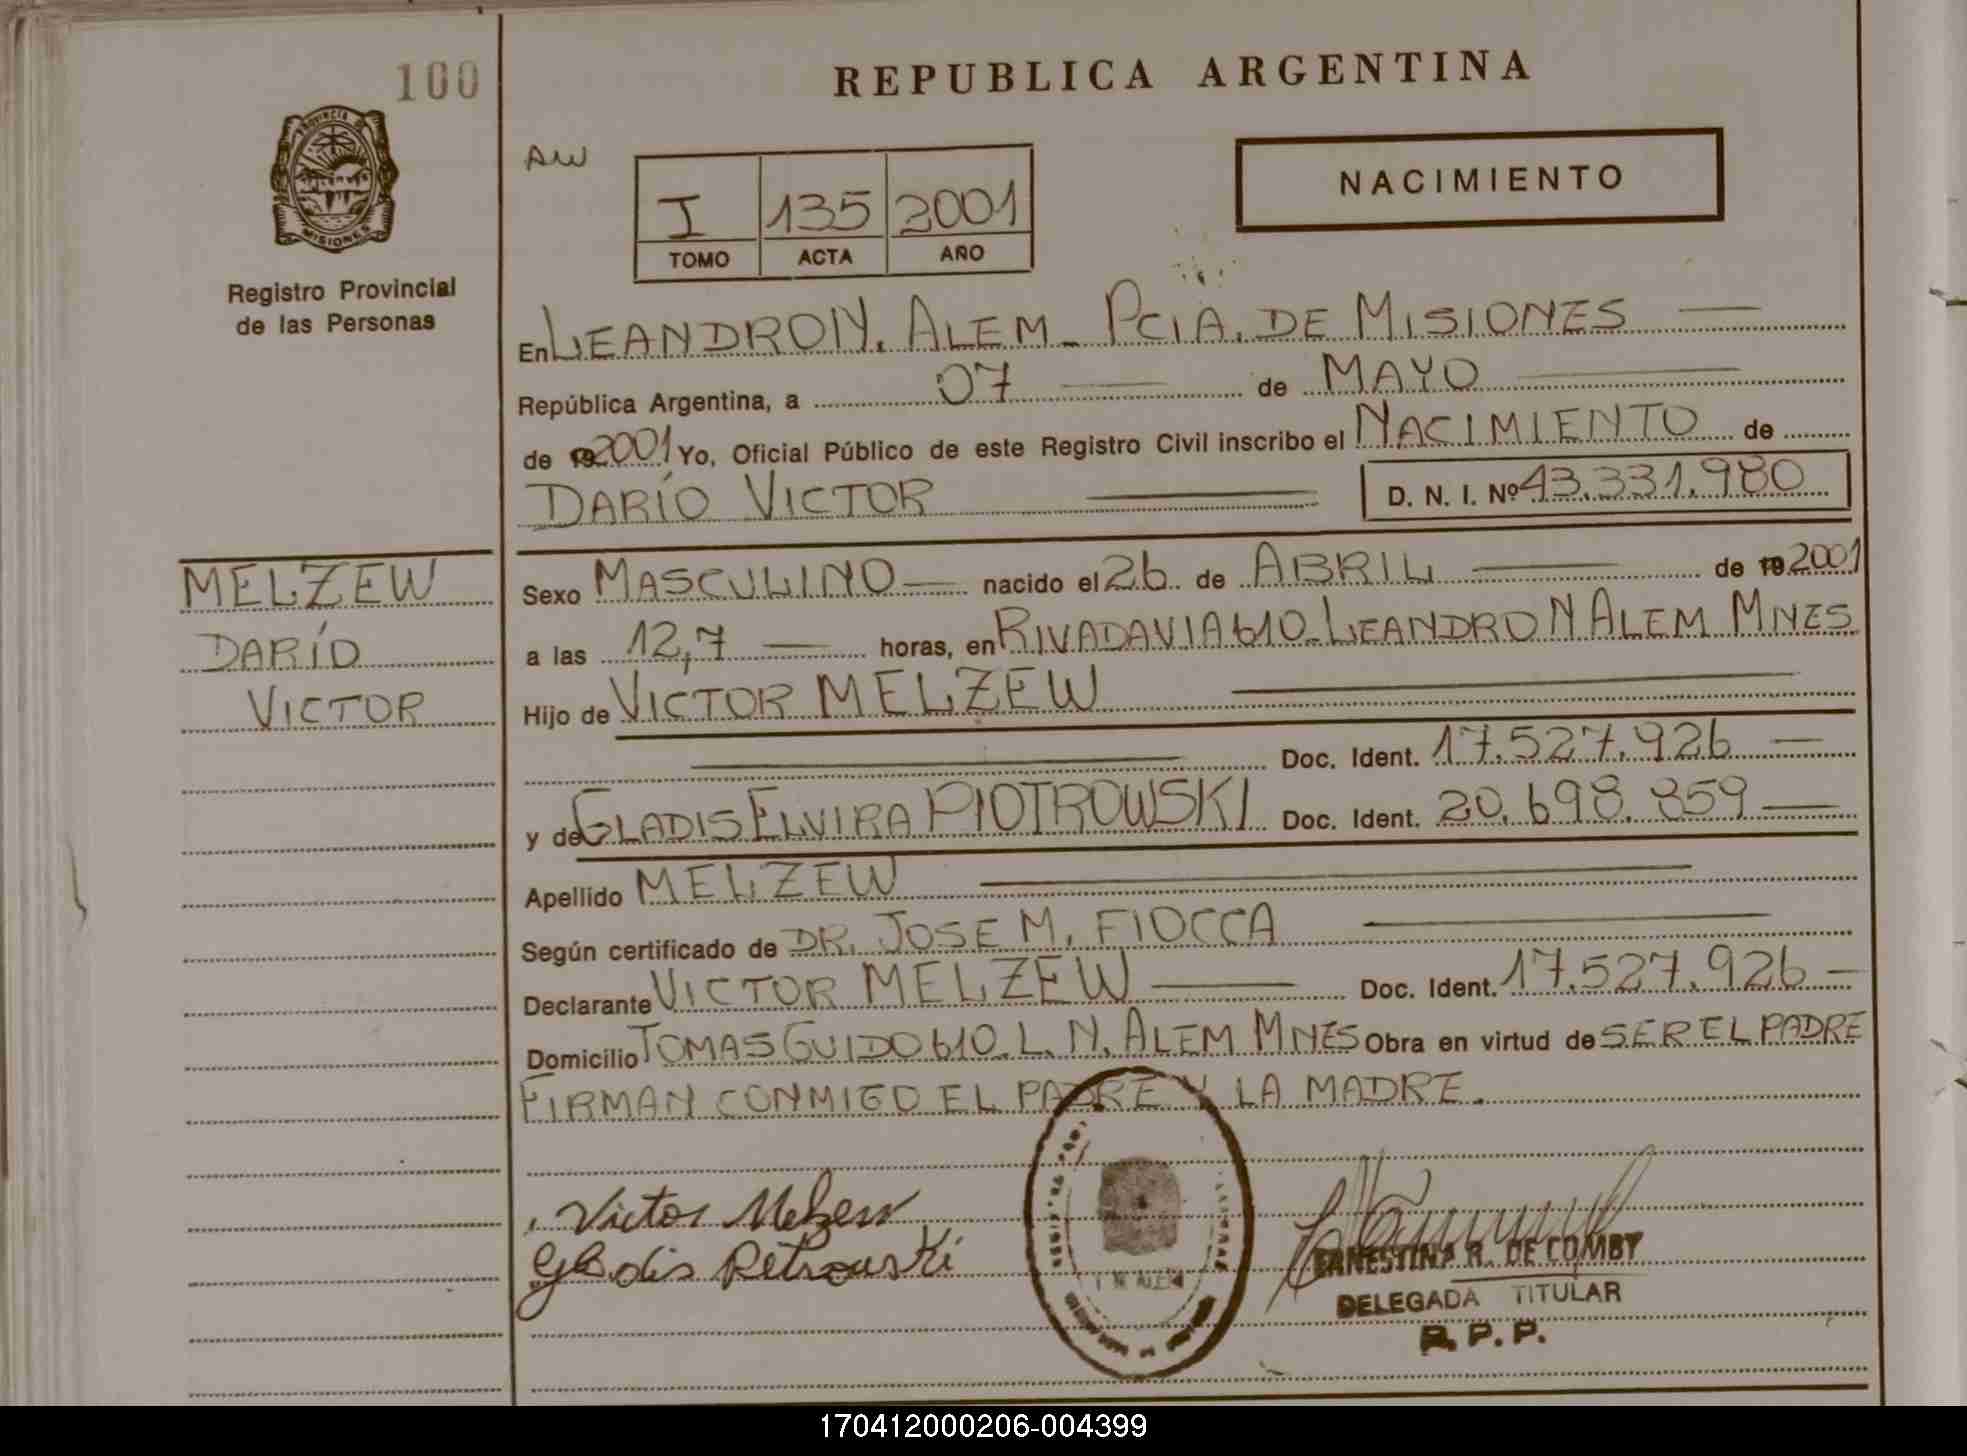 100
REPUBLICA ARGENTINA
PROVINCIA DE
MISIONES
Registro Provincial
de las Personas
AW
I 135 2001
TOMO ACTA AÑO
NACIMIENTO
En LEANDRO N. ALEM - PCIA. DE MISIONES
República Argentina, a 07 de MAYO
de 2001 Yo, Oficial Público de este Registro Civil inscribo el NACIMIENTO de
DARÍO VICTOR D. N. I. Nº 43.331.980
MELZEW
DARÍO
VICTOR
Sexo MASCULINO nacido el 26 de ABRIL de 19 2001
a las 12,7 horas, en RIVADAVIA 610 - LEANDRO N ALEM MNES
Hijo de VICTOR MELZEW
Doc. Ident. 17.527.926
y de GLADIS ELVIRA PIOTROWSKI Doc. Ident. 20.698.859
Apellido MELZEW
Según certificado de DR. JOSE M. FIOCCA
Declarante VICTOR MELZEW Doc. Ident. 17.527.926
Domicilio TOMAS GUIDO 610. L. N. ALEM MNES Obra en virtud de SER EL PADRE
FIRMAN CONMIGO EL PADRE Y LA MADRE.
Victor Melzew
Gladis Petrouski
L N ALEM
ERNESTINA R. DE COMBY
DELEGADA TITULAR
R.P.P.
170412000206-004399